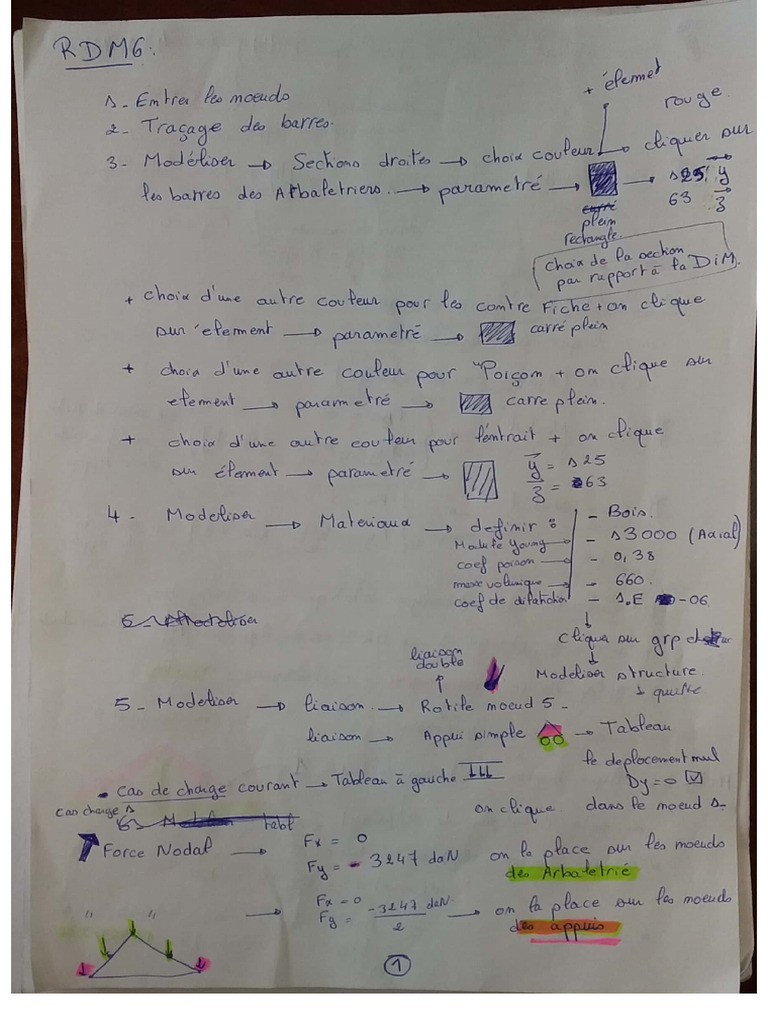 RDM6:
1- Entrer les noeuds
2- Traçage des barres.
+ élement
rouge.
3- Modéliser → Sections droites → choix couleur → cliquer sur
les barres des Arbaletriers. → parametré → → 125 y
63 z
plein
rectangle.
choix de la section
par rapport à la DiM.
+ choix d'une autre couleur pour les contre Fiche + on clique
sur élement → parametré → carré plein
+ choix d'une autre couleur pour "Poiçom + on clique sur
element → parametré → carre plein.
+ choix d'une autre couleur pour l'entrait + on clique
sur élement → parametré → y = 125
z = 63
4- Modeliser → Materiaux → definir : - Bois.
Module Young → - 13000 (Axial)
coef poison → - 0,38
masse volumique → - 660.
coef de dilatation → - 1.E -06
Cliquer sur grp
Modeliser structure
↓ quitte
liaison
double
5- Modeliser → liaison → Rotule noeud 5 -
liaison → Appui simple → Tableau
le deplacement nul
Dy = 0 ☑
• cas de charge courant → Tableau à gauche
on clique dans le noeud 1-
cas charge 1
Force Nodal → Fx = 0
Fy = - 3247 daN on la place sur les noeuds
des Arbaletrié
" " → Fx = 0
Fy = -3247 daN / 2 → on la place sur les noeuds
des appuis
1